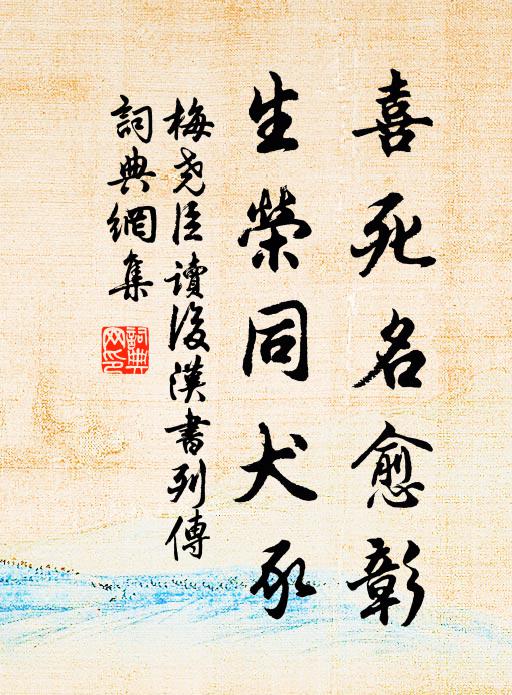 喜死名愈彰
生榮同犬豕
梅堯臣讀後漢書列傳
詞典網集
詞典網印